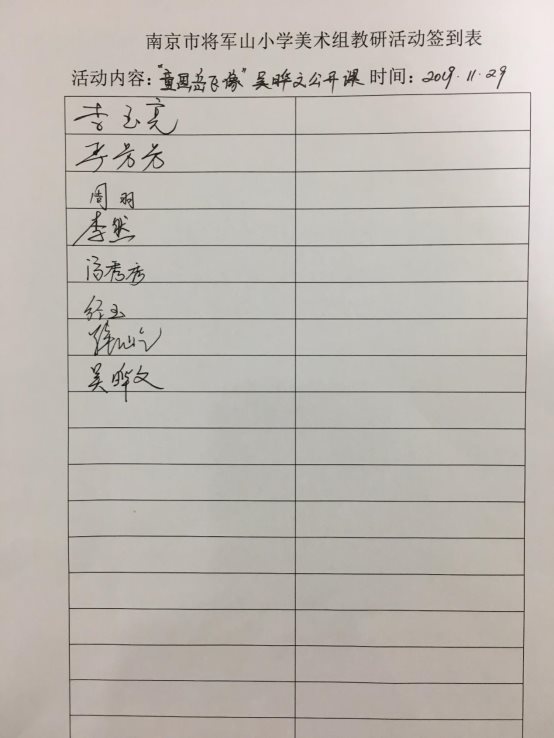 南京市将军山小学美术组教研活动签到表
活动内容：“童思岳飞像” 吴晔文公开课 时间：2019.11.29
李玉亮
李芳芳
周羽
李然
冯秀秀
经玉
吴晔文